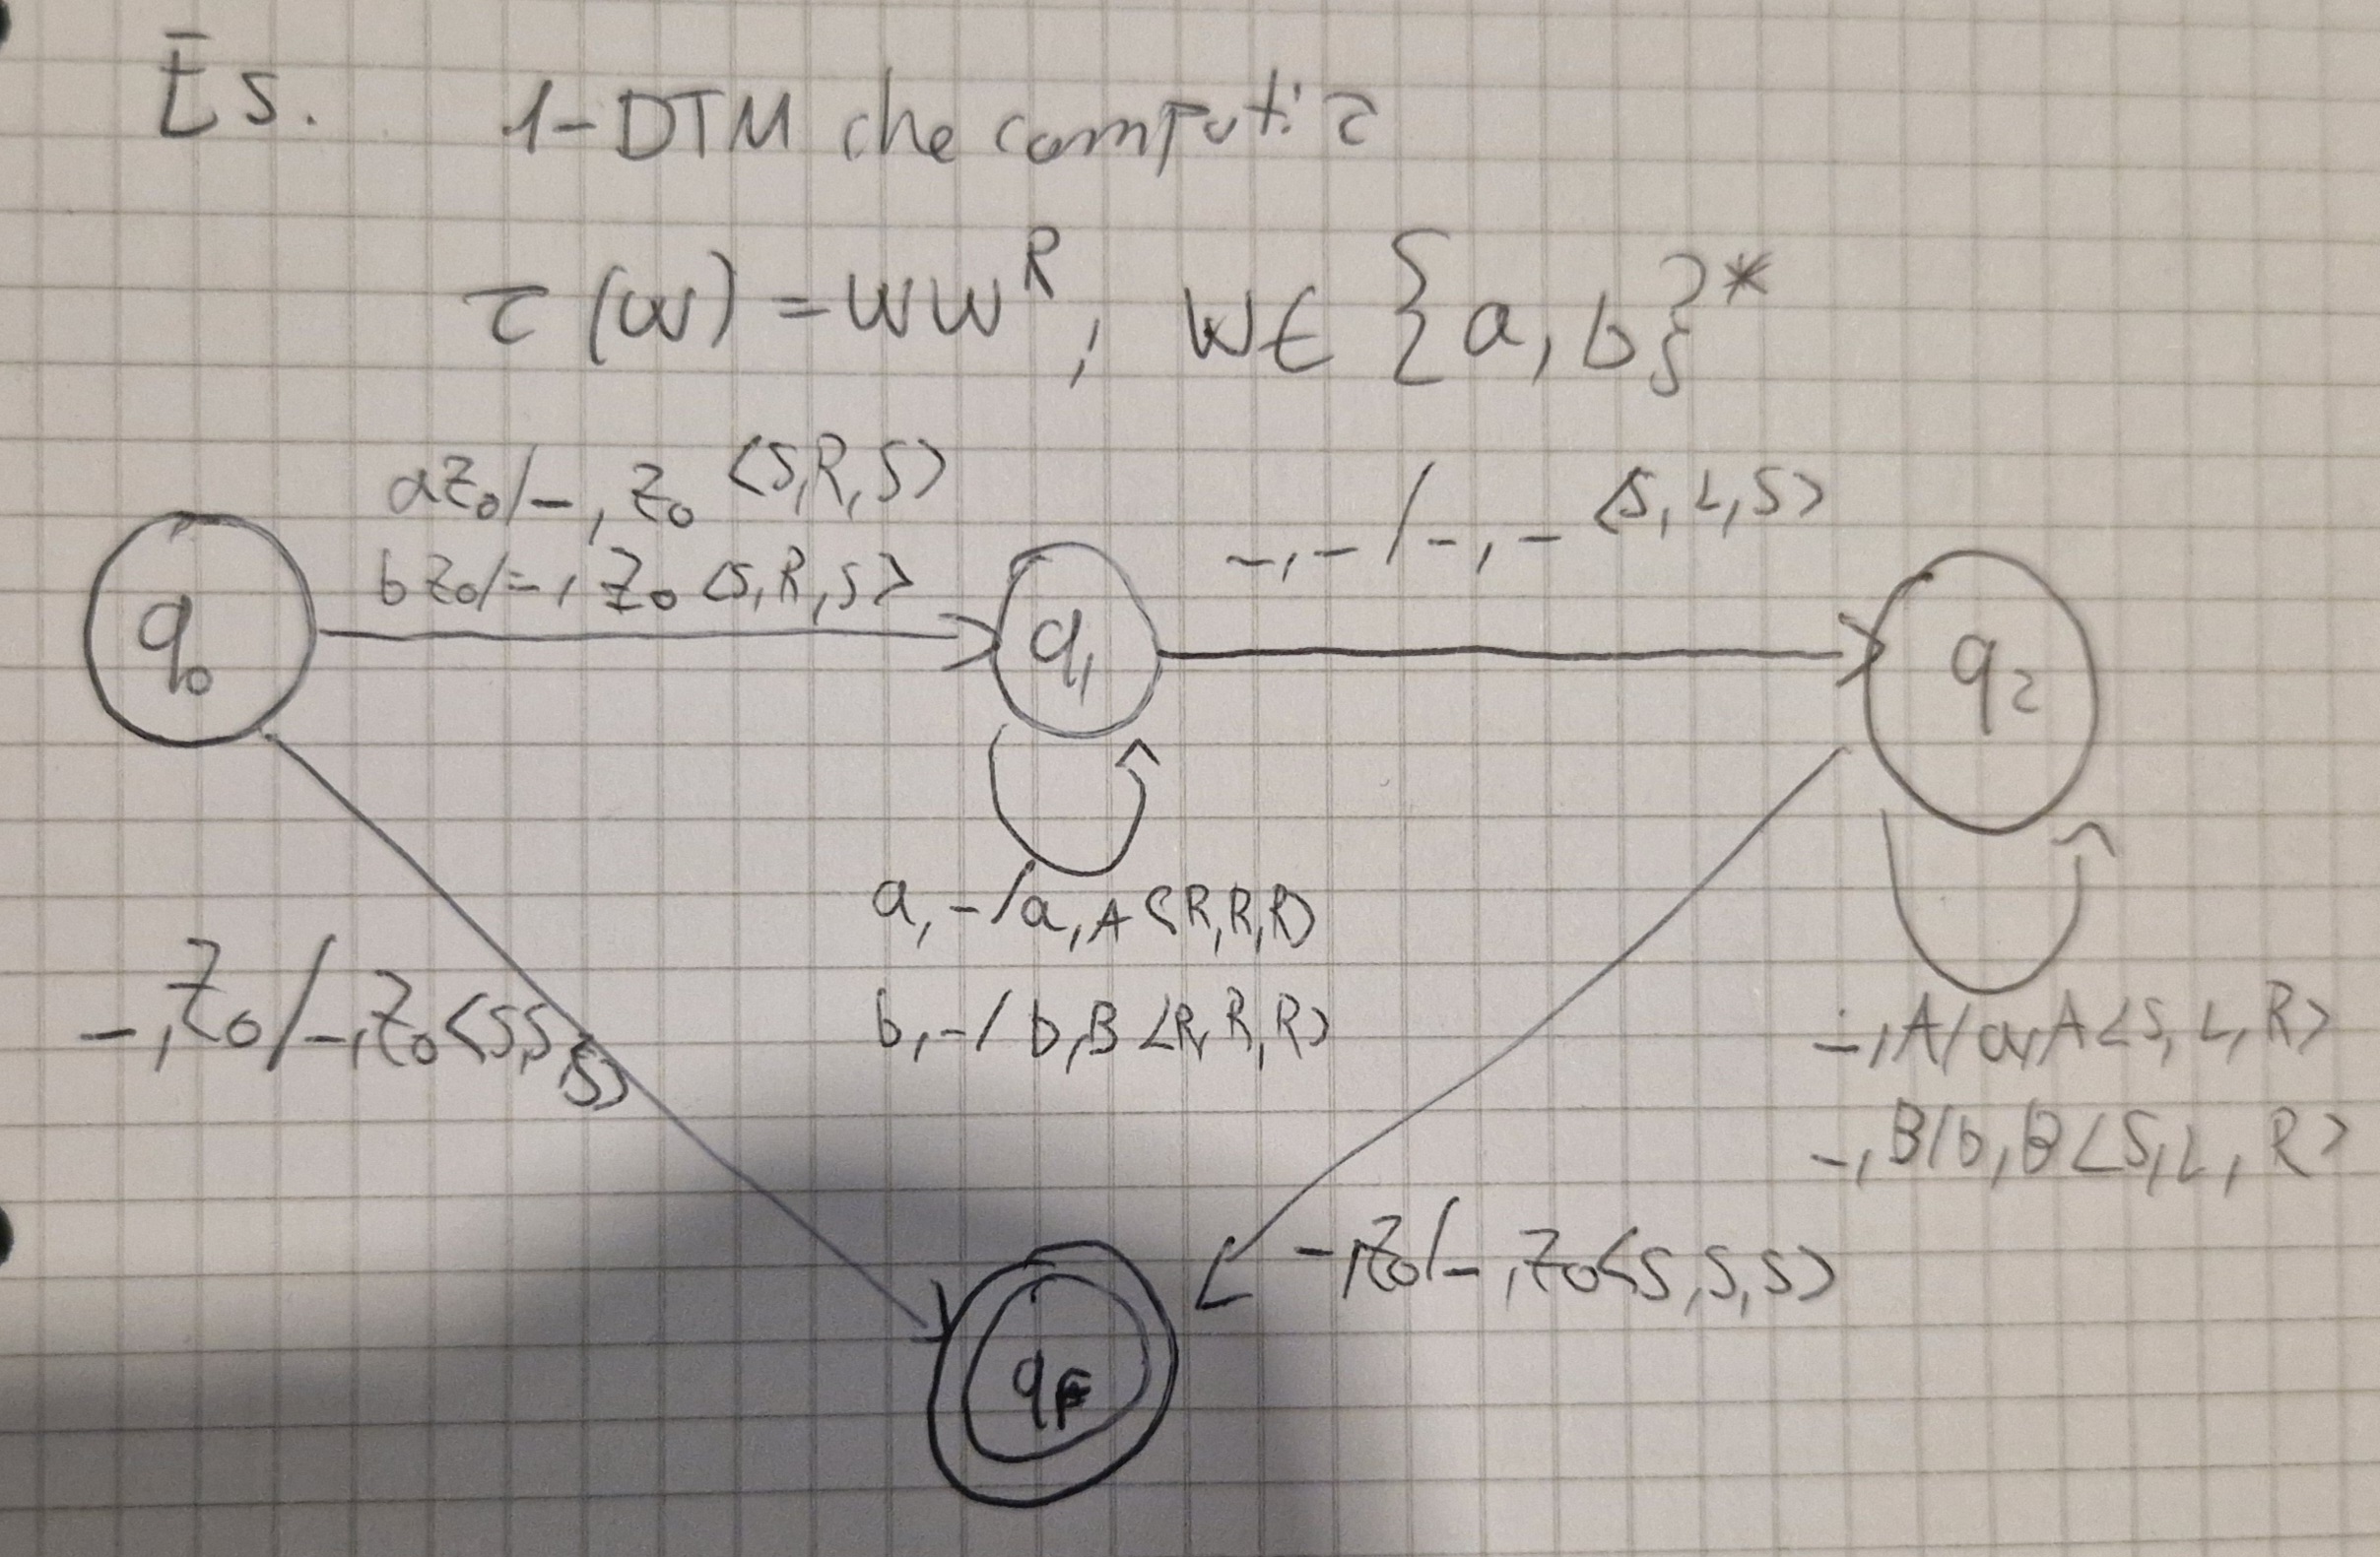 Es. 1-DTM che computi τ
τ(w) = ww^R, w∈ {a,b}*
aZ₀/-, Z₀ <S,R,S>
bZ₀/-, Z₀ <S,R,S>
-,-/-,- <S,L,S>
q₀
q₁
q₂
a,-/a,A <R,R,R>
b,-/b,B <R,R,R>
-,Z₀/-,Z₀<S,S,S>
-,A/a,A<S,L,R>
-,B/b,B<S,L,R>
-,Z₀/-,Z₀<S,S,S>
q_F